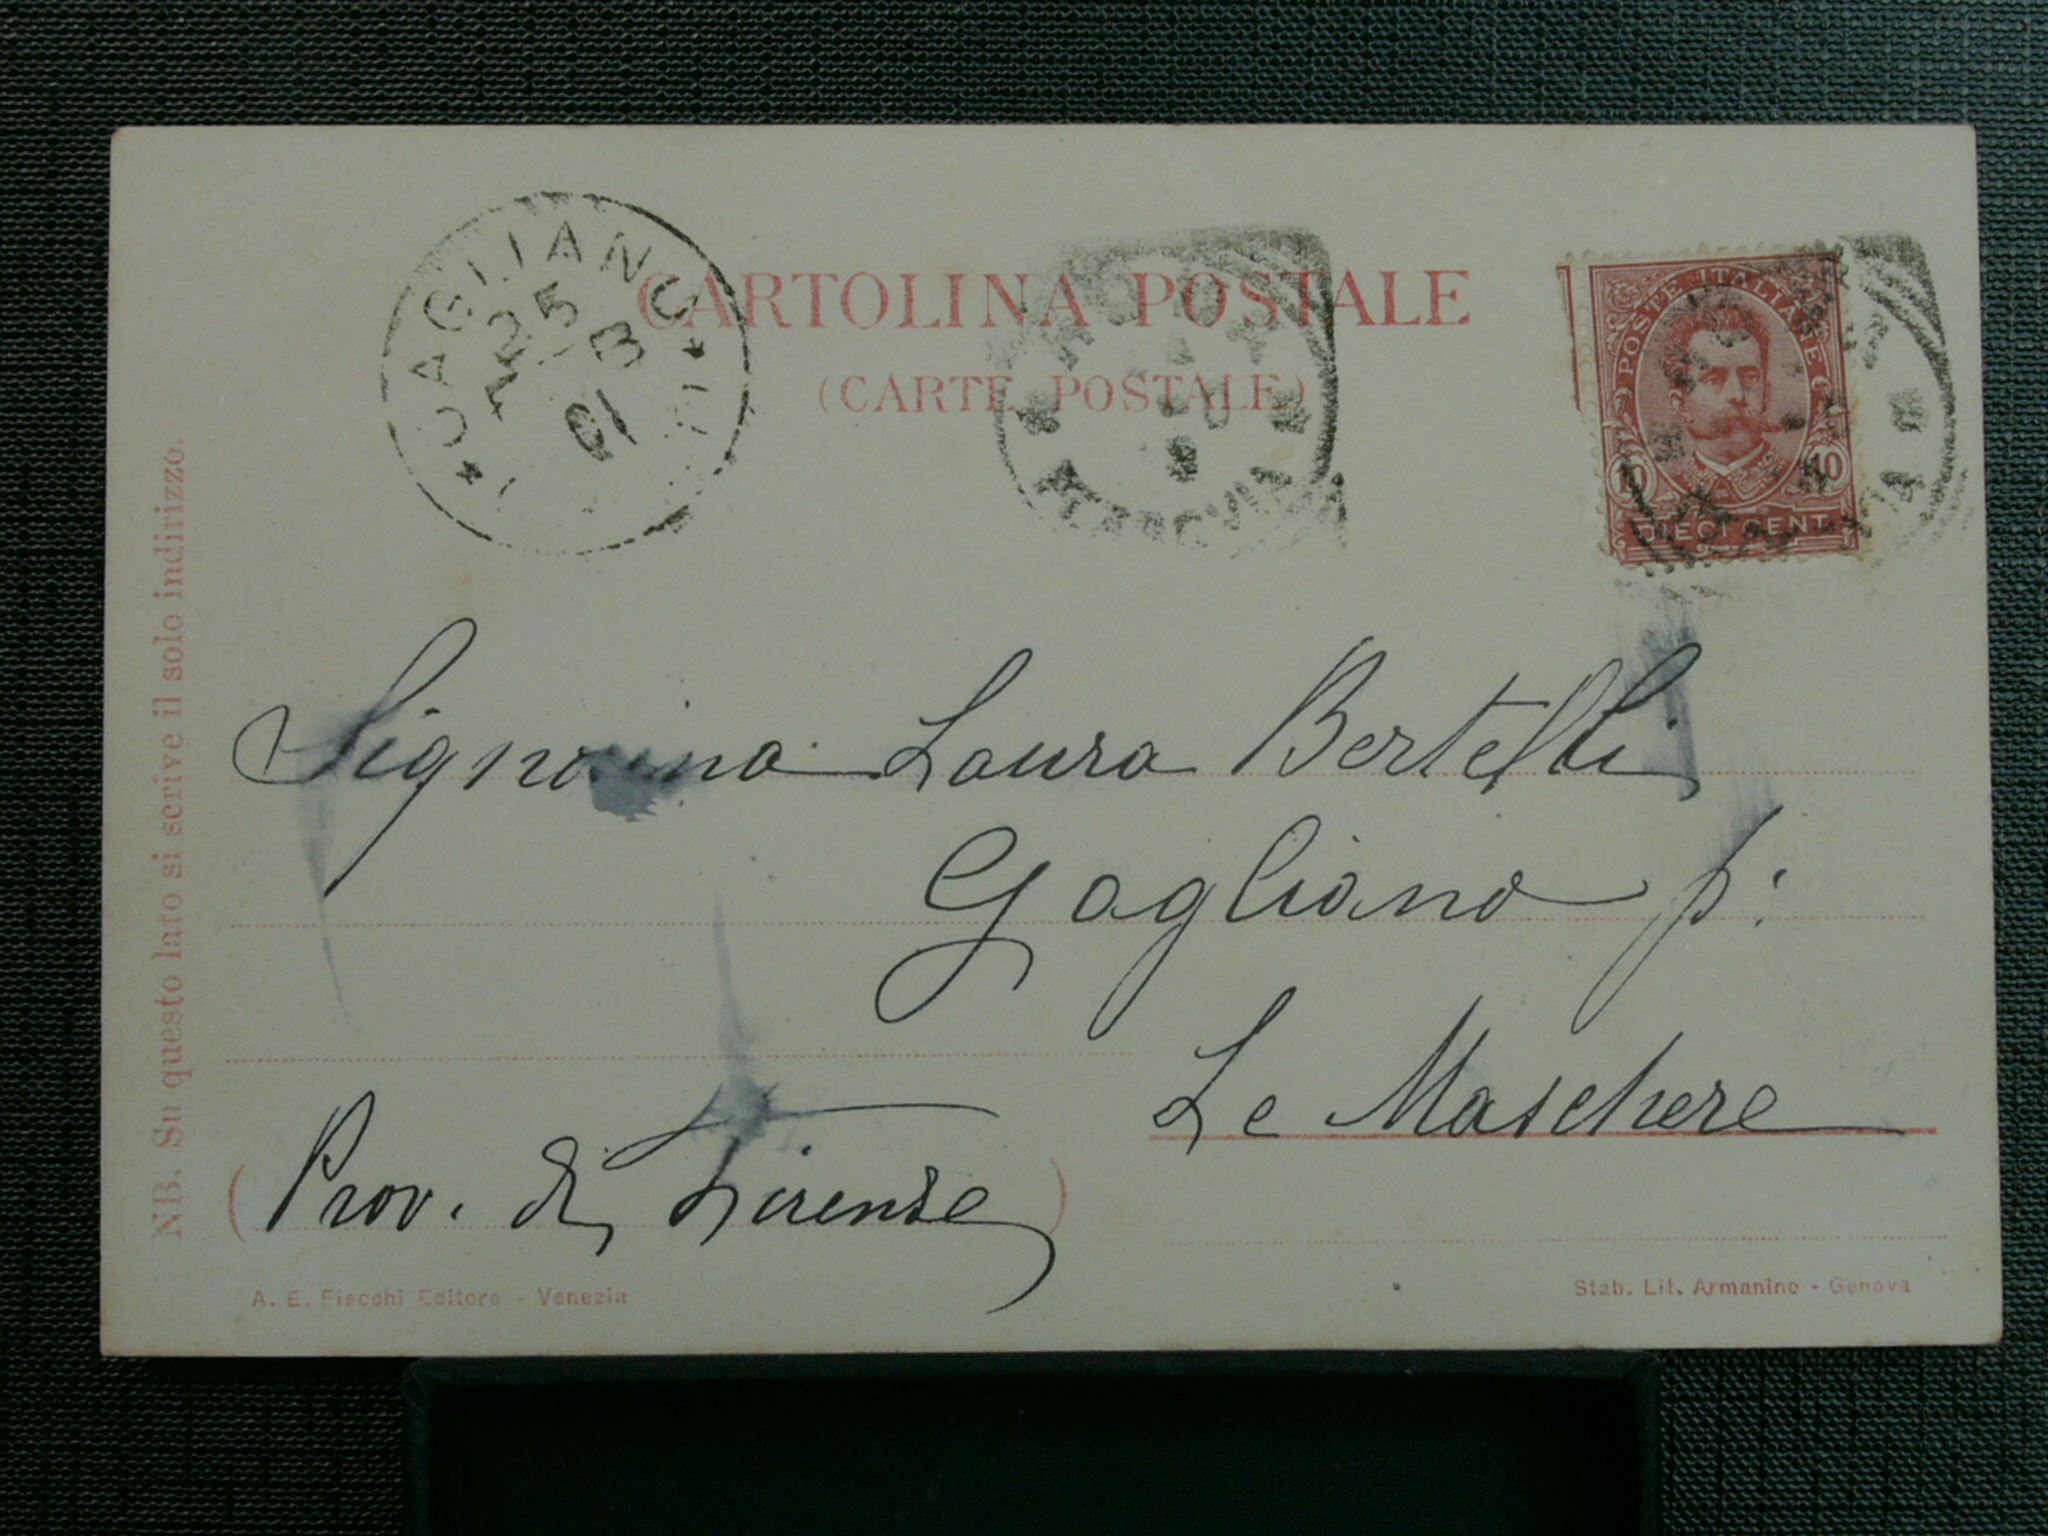 CARTOLINA POSTALE
(CARTE POSTALE)
GAGLIANO
25
3
01
POSTE ITALIANE
10 10
DIECI CENT.
Signorina Laura Bertelli
Gagliano p:
Le Maschere
(Prov. di Firenze)
NB. Su questo lato si scrive il solo indirizzo.
A. E. Fiecchi Editore - Venezia
Stab. Lit. Armanino - Genova